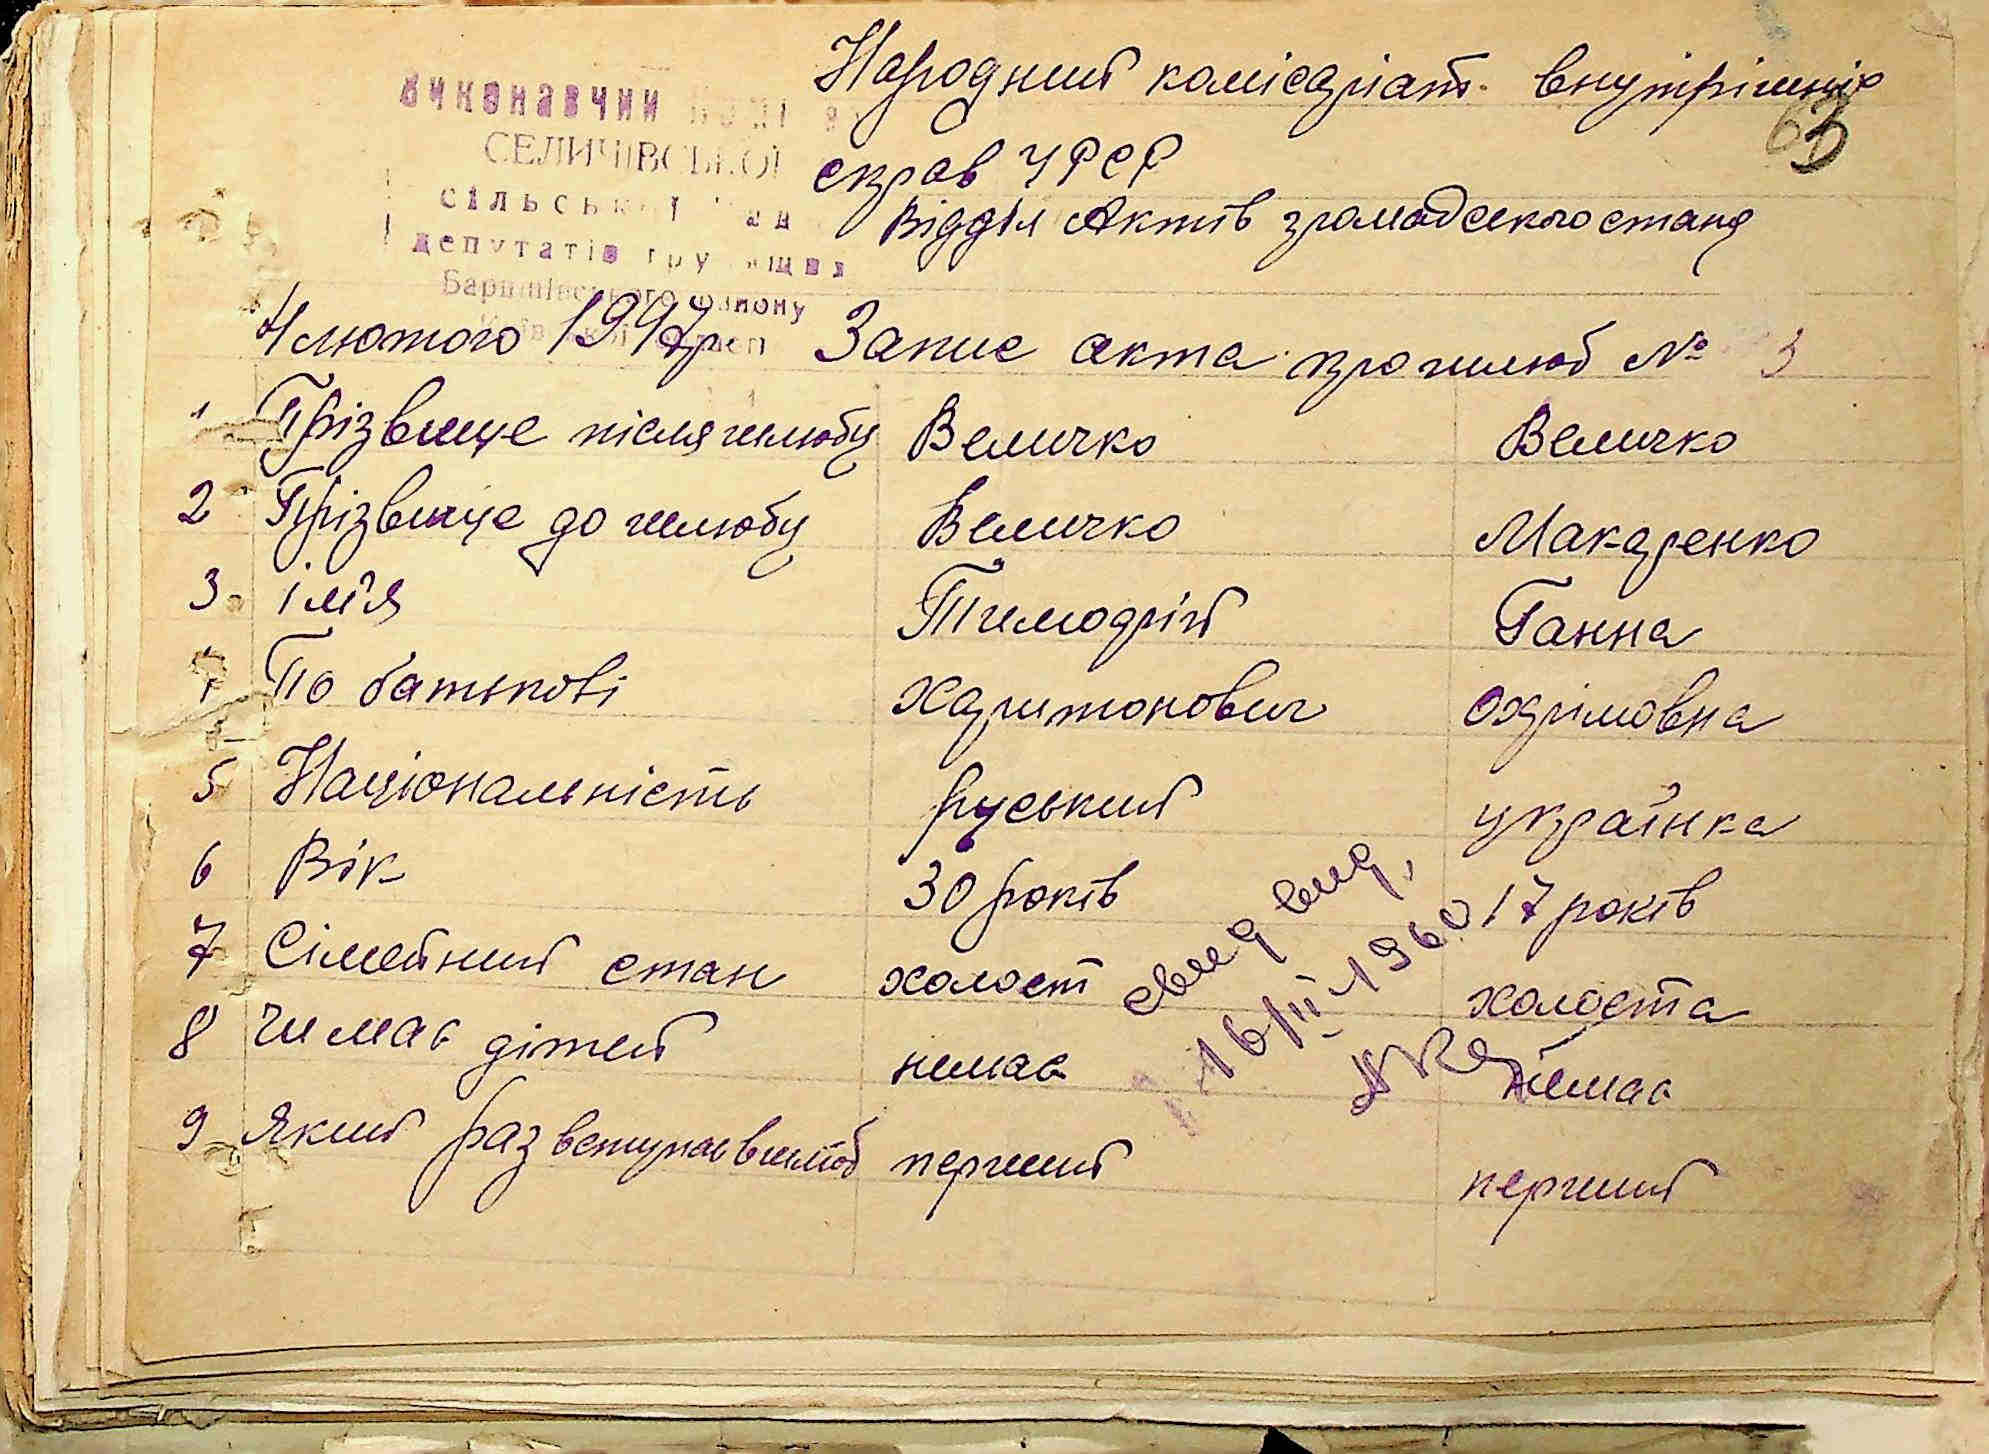 Народний комісаріат внутрішніх
63
справ УРСР
Відділ Актів громадського стану
виконавчий
СЕЛИЧІВСЬКОЇ
сільської
депутатів трудящих
Баришівського району
4 лютого 1947р. Запис акта про шлюб № 3
1 Прізвище після шлюбу Величко Величко
2 Прізвище до шлюбу Величко Макаренко
3 імя Тимофій Ганна
4 По батькові Харитонович Охрімовна
5 Національність руський українка
6 Вік 30 років 17 років
7 Сімейний стан холост холоста
8 чи має дітей немає немає
9 Який раз вступає в шлюб перший перший
16/II-1960